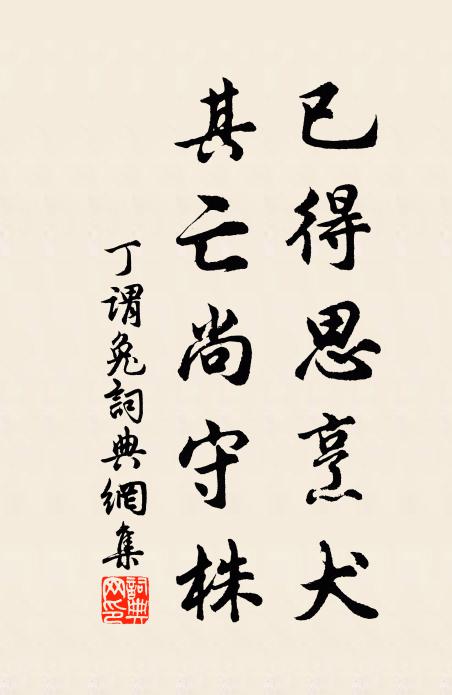 已得思烹犬
其亡尚守株
丁谓兔詞典網集
詞典网印